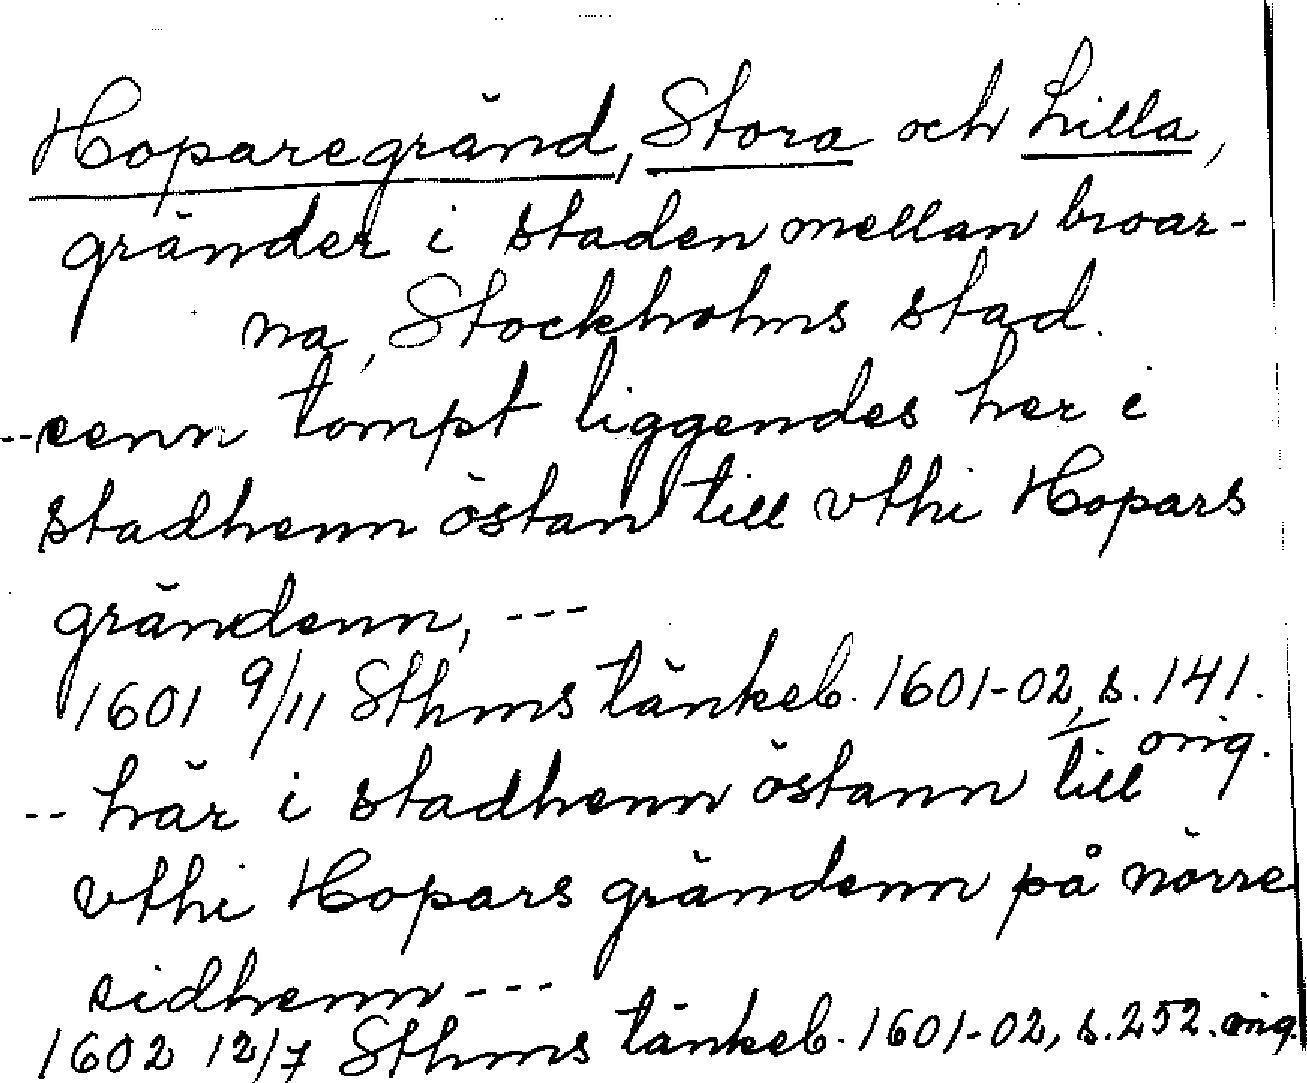 Hoparegränd, Stora och Lilla,
gränder i staden mellan broar-
na, Stockholms stad.
--eenn tompt liggendes her i
stadhenn östan till vthi Hopars
grändenn, ---
1601 9/11 Sthms tänkeb. 1601-02, s. 141.
orig.
-- här i stadhenn östann till
vthi Hopars grändenn på nörre
sidhenn ---
1602 12/7 Sthms tänkeb. 1601-02, s. 252. orig.